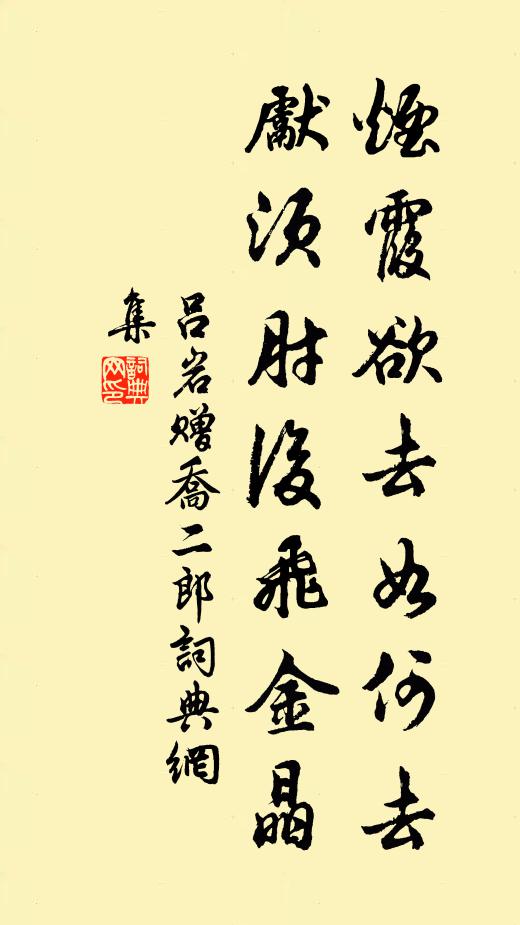 煙霞欲去如何去
獻須肘後飛金晶
吕岩贈喬二郎詞典網
集
詞典
网印